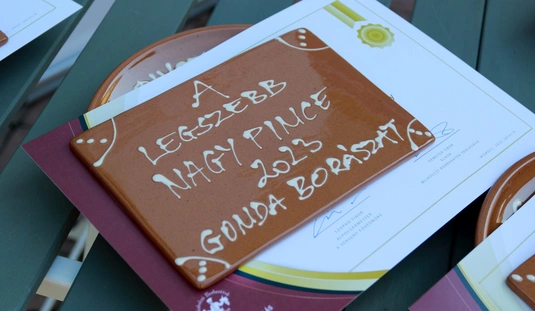 A
LEGSZEBB
NAGY PINCE
2023
GONDA BORÁSZAT